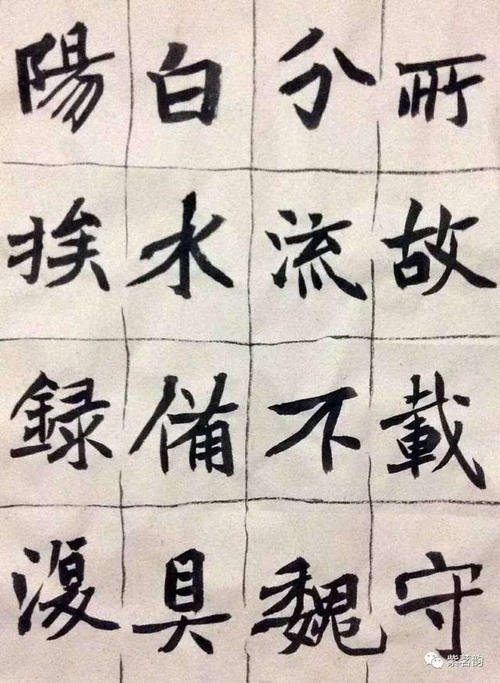 所故載守
分流不魏
白水備具
陽挨録
紫茗韵